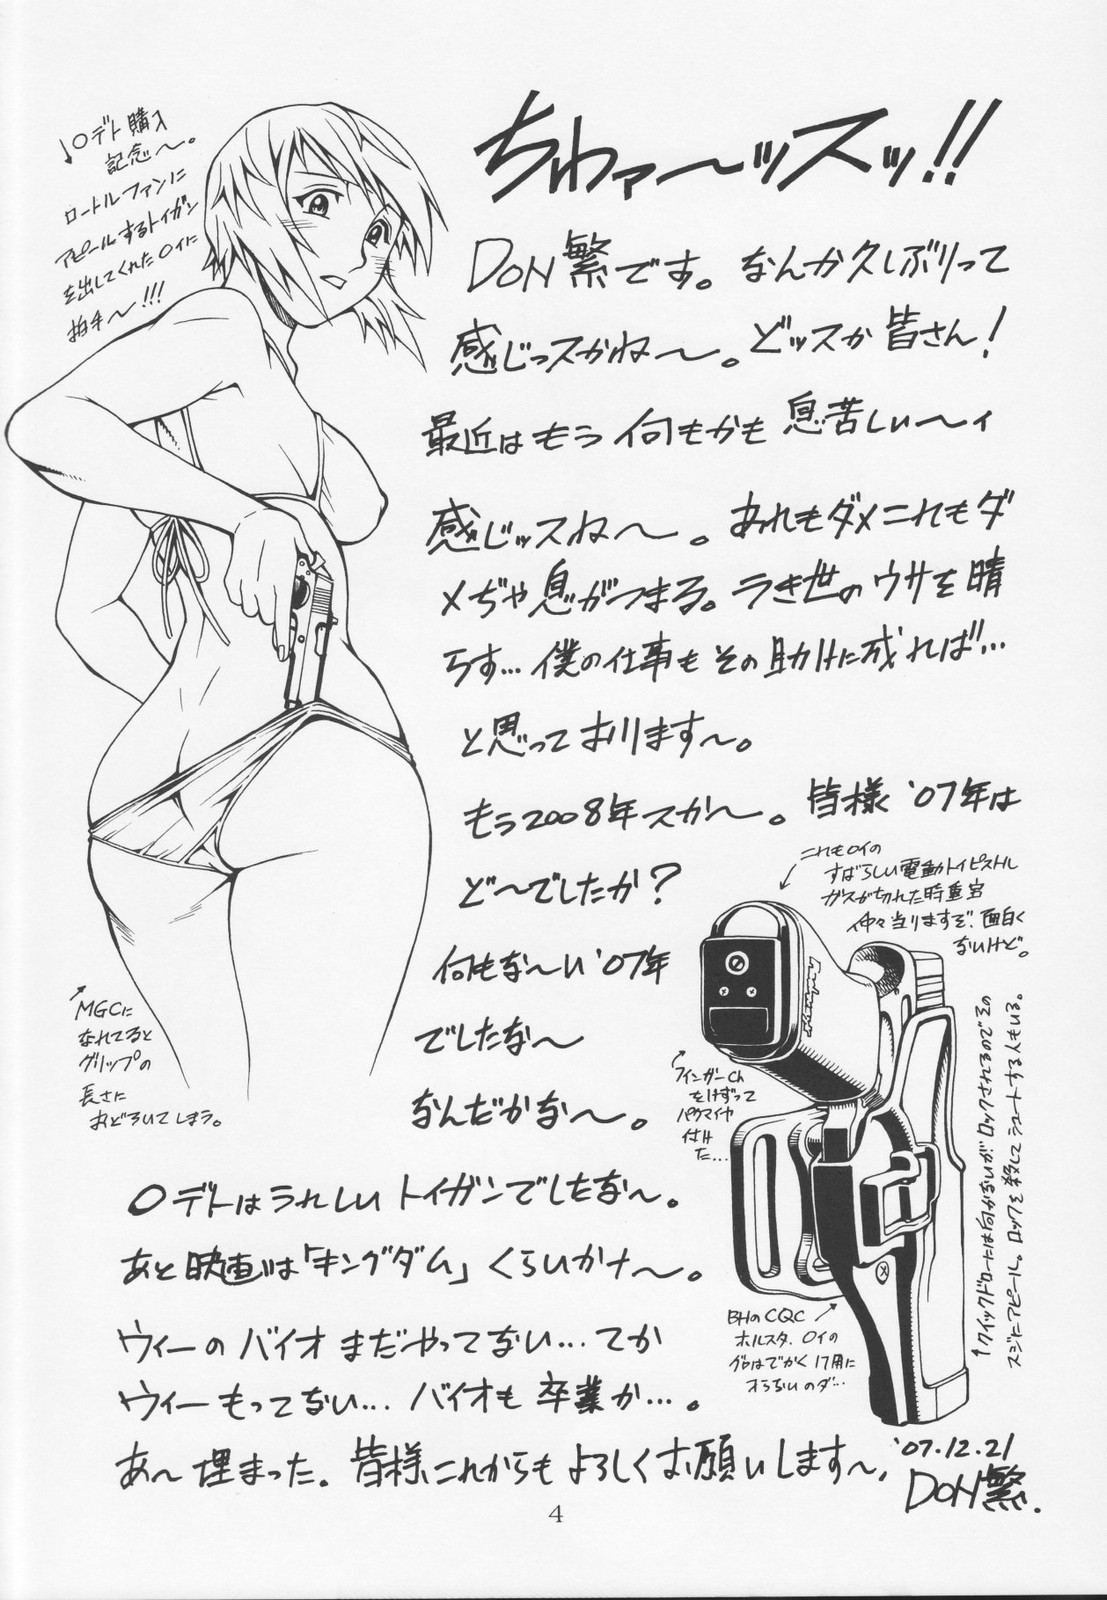 ちわァ〜ッスッ!!
DON繁です。なんか久しぶりって
感じっスかね〜。どッスか皆さん!
最近はもう何もかも息苦しぃ〜ィ
感じッスね〜。あれもダメこれもダ
メぢゃ息がつまる。うき世のウサを晴
らす…僕の仕事もその助けに成れば…
と思っております〜。
もう2008年スか〜。皆様'07年は
ど〜でしたか?
何もな〜い'07年
でしたな〜
なんだかな〜。
〇デトはうれしいトイガンでしたな〜。
あと映画は「キングダム」くらいかナ〜。
ウィーのバイオまだやってない…てか
ウィーもってない…バイオも卒業か…。
あ〜埋まった。皆様これからもよろしくお願いします〜、
'07.12.21
DON繁.
↓〇デト購入
記念〜。
ロートルファンに
アピールするトイガン
を出してくれた〇イに
拍手〜!!!
↗
MGCに
なれてると
グリップの
長さに
おどろいてしまう。
これも〇イの
すばらしい電動トイピストル
ガスが切れた時重宝
仲々当りますぞ、面白く
ないけど。
フィンガーCh
をけずって
パクマイヤ
付けた…
BHのCQC
ホルスタ、〇イの
グロはでかく17用に
入らないのダ…
↑クイックドローには向かないがロックされるのでその
スジにアピール。ロックを殺してシュートする人もいる。
4